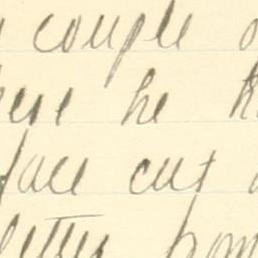 couple
here he
face cut
letter hom